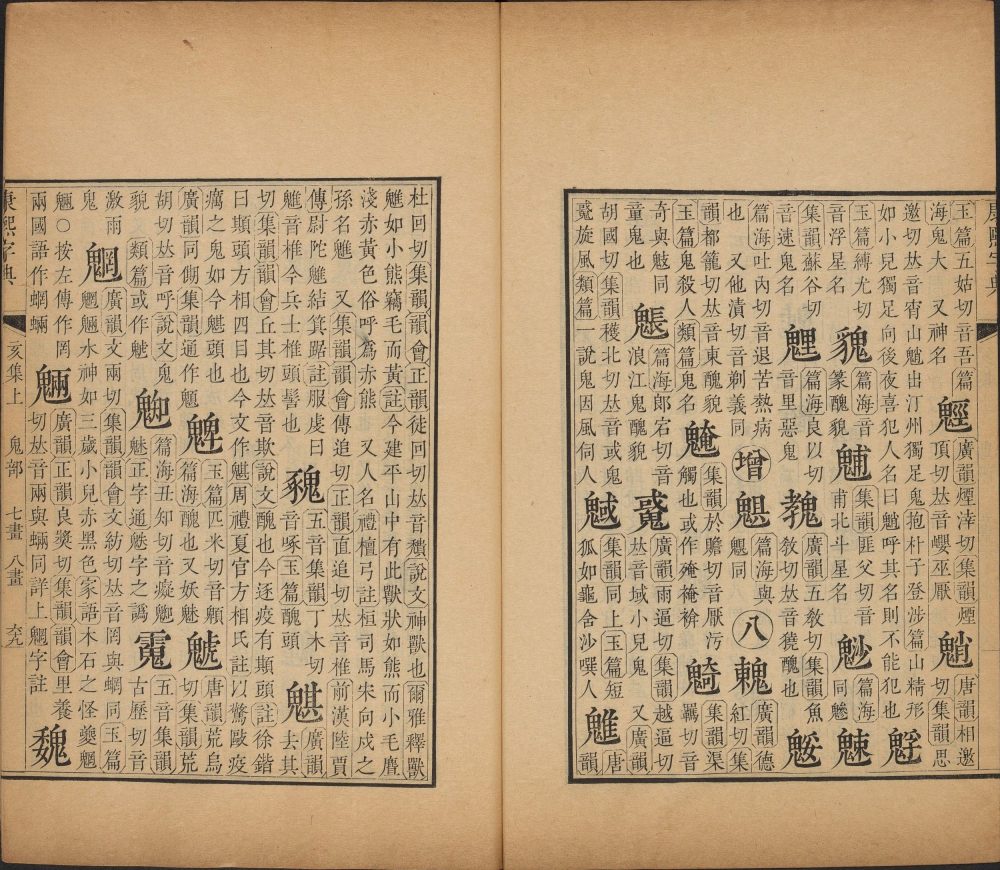 玉篇五姑切音吾篇
海鬼大 又神名
廣韻煙涬切集韻煙
頂切𠀤音巊巫厭
魈
唐韻相邀
切集韻思
邀切𠀤音宵山魈出汀州獨足鬼抱朴子登涉篇山精形
如小兒獨足向後夜喜犯人名曰魈呼其名則不能犯也
玉篇縛尤切
音浮星名
篇海音
篆醜貌
集韻匪父切音
甫北斗星名
魦
篇海
同魑
集韻蘇谷切
音速鬼名
篇海良以切
音里惡鬼
廣韻五敎切集韻魚
敎切𠀤音獟醜也
篇海吐內切音退苦熱病
也 又他漬切音剃義同
增
篇海與
魁同
八
廣韻德
紅切集
韻都籠切𠀤音東醜貌
玉篇鬼殺人類篇鬼名
集韻於贍切音厭污
觸也或作
集韻渠
羈切音
奇與鬾同
童鬼也
篇海郎宕切音
浪江鬼醜貌
廣韻雨逼切集韻越逼切
𠀤音域小兒鬼 又廣韻
胡國切集韻穫北切𠀤音或鬼
旋風類篇一說鬼因風伺人
魊
集韻同上玉篇短
狐如龜含沙噀人
魋
唐
韻
杜回切集韻韻會正韻徒回切𠀤音穨說文神獸也爾雅釋獸
魋如小熊竊毛而黃註今建平山中有此獸狀如熊而小毛麆
淺赤黃色俗呼爲赤熊 又人名禮檀弓註桓司馬宋向戌之
孫名魋 又集韻韻會傳追切正韻直追切𠀤音椎前漢陸賈
傳尉陀魋結箕踞註服虔曰
魋音椎今兵士椎頭髻也
五音集韻丁木切
音啄玉篇醜頭
䫏
廣韻
去其
切集韻韻會丘其切𠀤音欺說文醜也今逐疫有䫏頭註徐鍇
曰䫏頭方相四目也今文作魌周禮夏官方相氏註以驚敺疫
癘之鬼如今魌頭也
廣韻同䫥集韻通作䫏
玉篇匹米切音頼
篇海醜也又妖魅
唐韻荒烏
切集韻荒
胡切𠀤音呼說文鬼
貌 類篇或作
篇海丑知切音癡魑
魅正字通魑字之譌
五音集韻
古歷切音
激雨
鬼
魍
廣韻文兩切集韻韻會文紡切𠀤音罔與蝄同玉篇
魍魎水神如三歲小兒赤黑色家語木石之怪夔魍
魎○按左傳作罔
兩國語作蝄蜽
魎
廣韻正韻良奬切集韻韻會里養
切𠀤音兩與蜽同詳上魍字註
魏
康熙字典
亥集上 鬼部 七畫 八畫